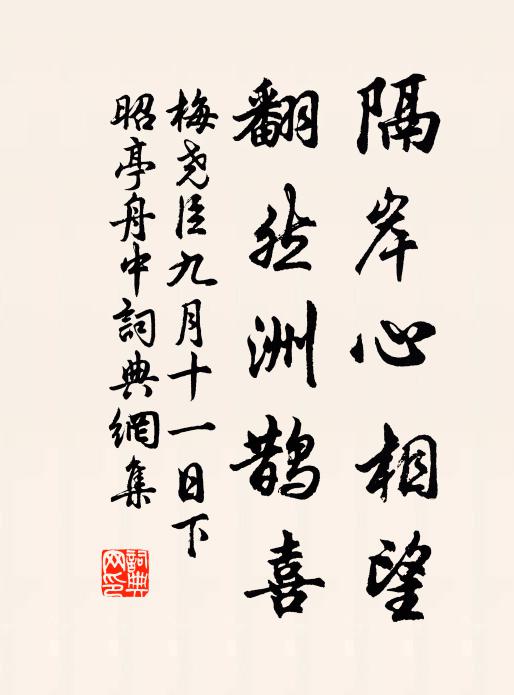 隔岸心相望
翻然洲鹊喜
梅尧臣九月十一日下
昭亭舟中詞典網集
詞典网印